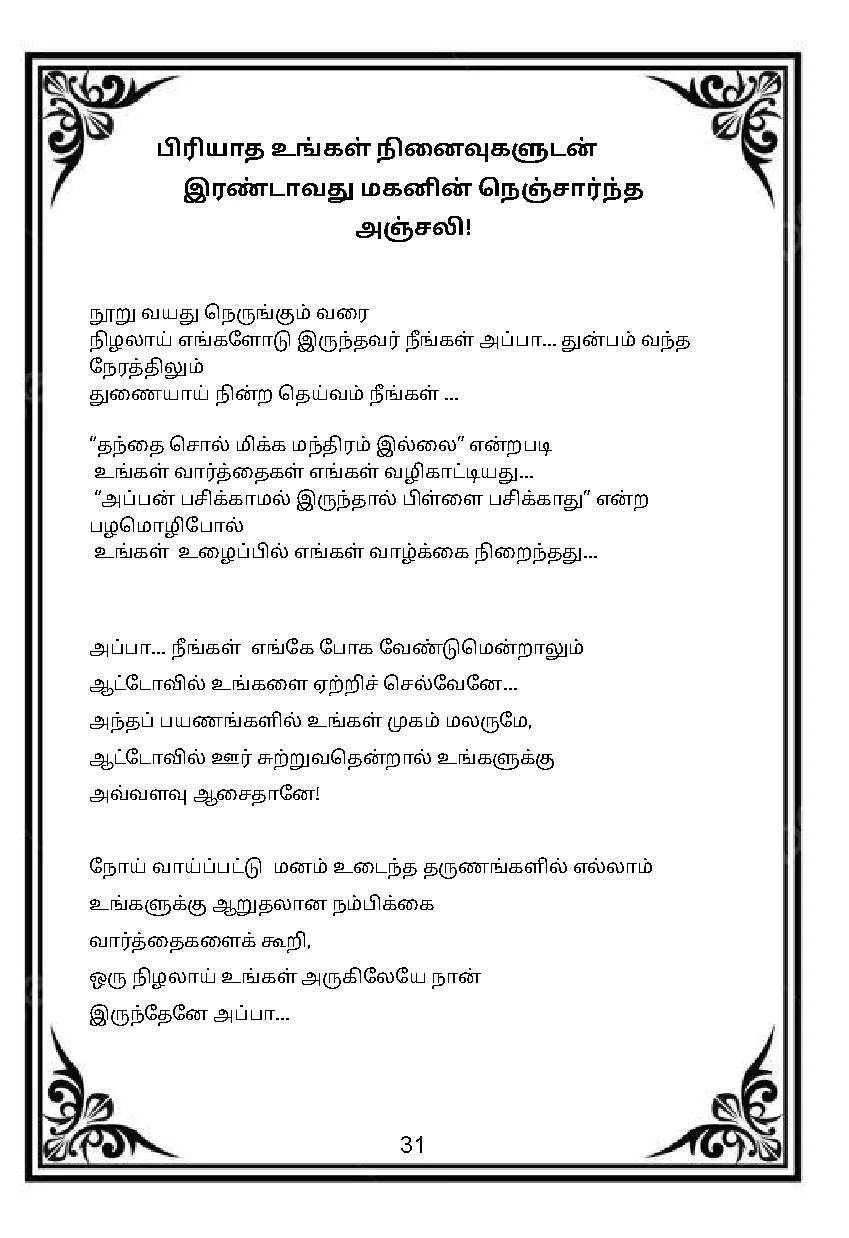 பிரியாத உங்கள் நினைவுகளுடன்
இரண்டாவது மகனின் நெஞ்சார்ந்த
அஞ்சலி!
நூறு வயது நெருங்கும் வரை
நிழலாய் எங்களோடு இருந்தவர் நீங்கள் அப்பா... துன்பம் வந்த
நேரத்திலும்
துணையாய் நின்ற தெய்வம் நீங்கள் ...
“தந்தை சொல் மிக்க மந்திரம் இல்லை” என்றபடி
உங்கள் வார்த்தைகள் எங்கள் வழிகாட்டியது...
“அப்பன் பசிக்காமல் இருந்தால் பிள்ளை பசிக்காது” என்ற
பழமொழிபோல்
உங்கள் உழைப்பில் எங்கள் வாழ்க்கை நிறைந்தது...
அப்பா... நீங்கள் எங்கே போக வேண்டுமென்றாலும்
ஆட்டோவில் உங்களை ஏற்றிச் செல்வேனே...
அந்தப் பயணங்களில் உங்கள் முகம் மலருமே,
ஆட்டோவில் ஊர் சுற்றுவதென்றால் உங்களுக்கு
அவ்வளவு ஆசைதானே!
நோய் வாய்ப்பட்டு மனம் உடைந்த தருணங்களில் எல்லாம்
உங்களுக்கு ஆறுதலான நம்பிக்கை
வார்த்தைகளைக் கூறி,
ஒரு நிழலாய் உங்கள் அருகிலேயே நான்
இருந்தேனே அப்பா...
31